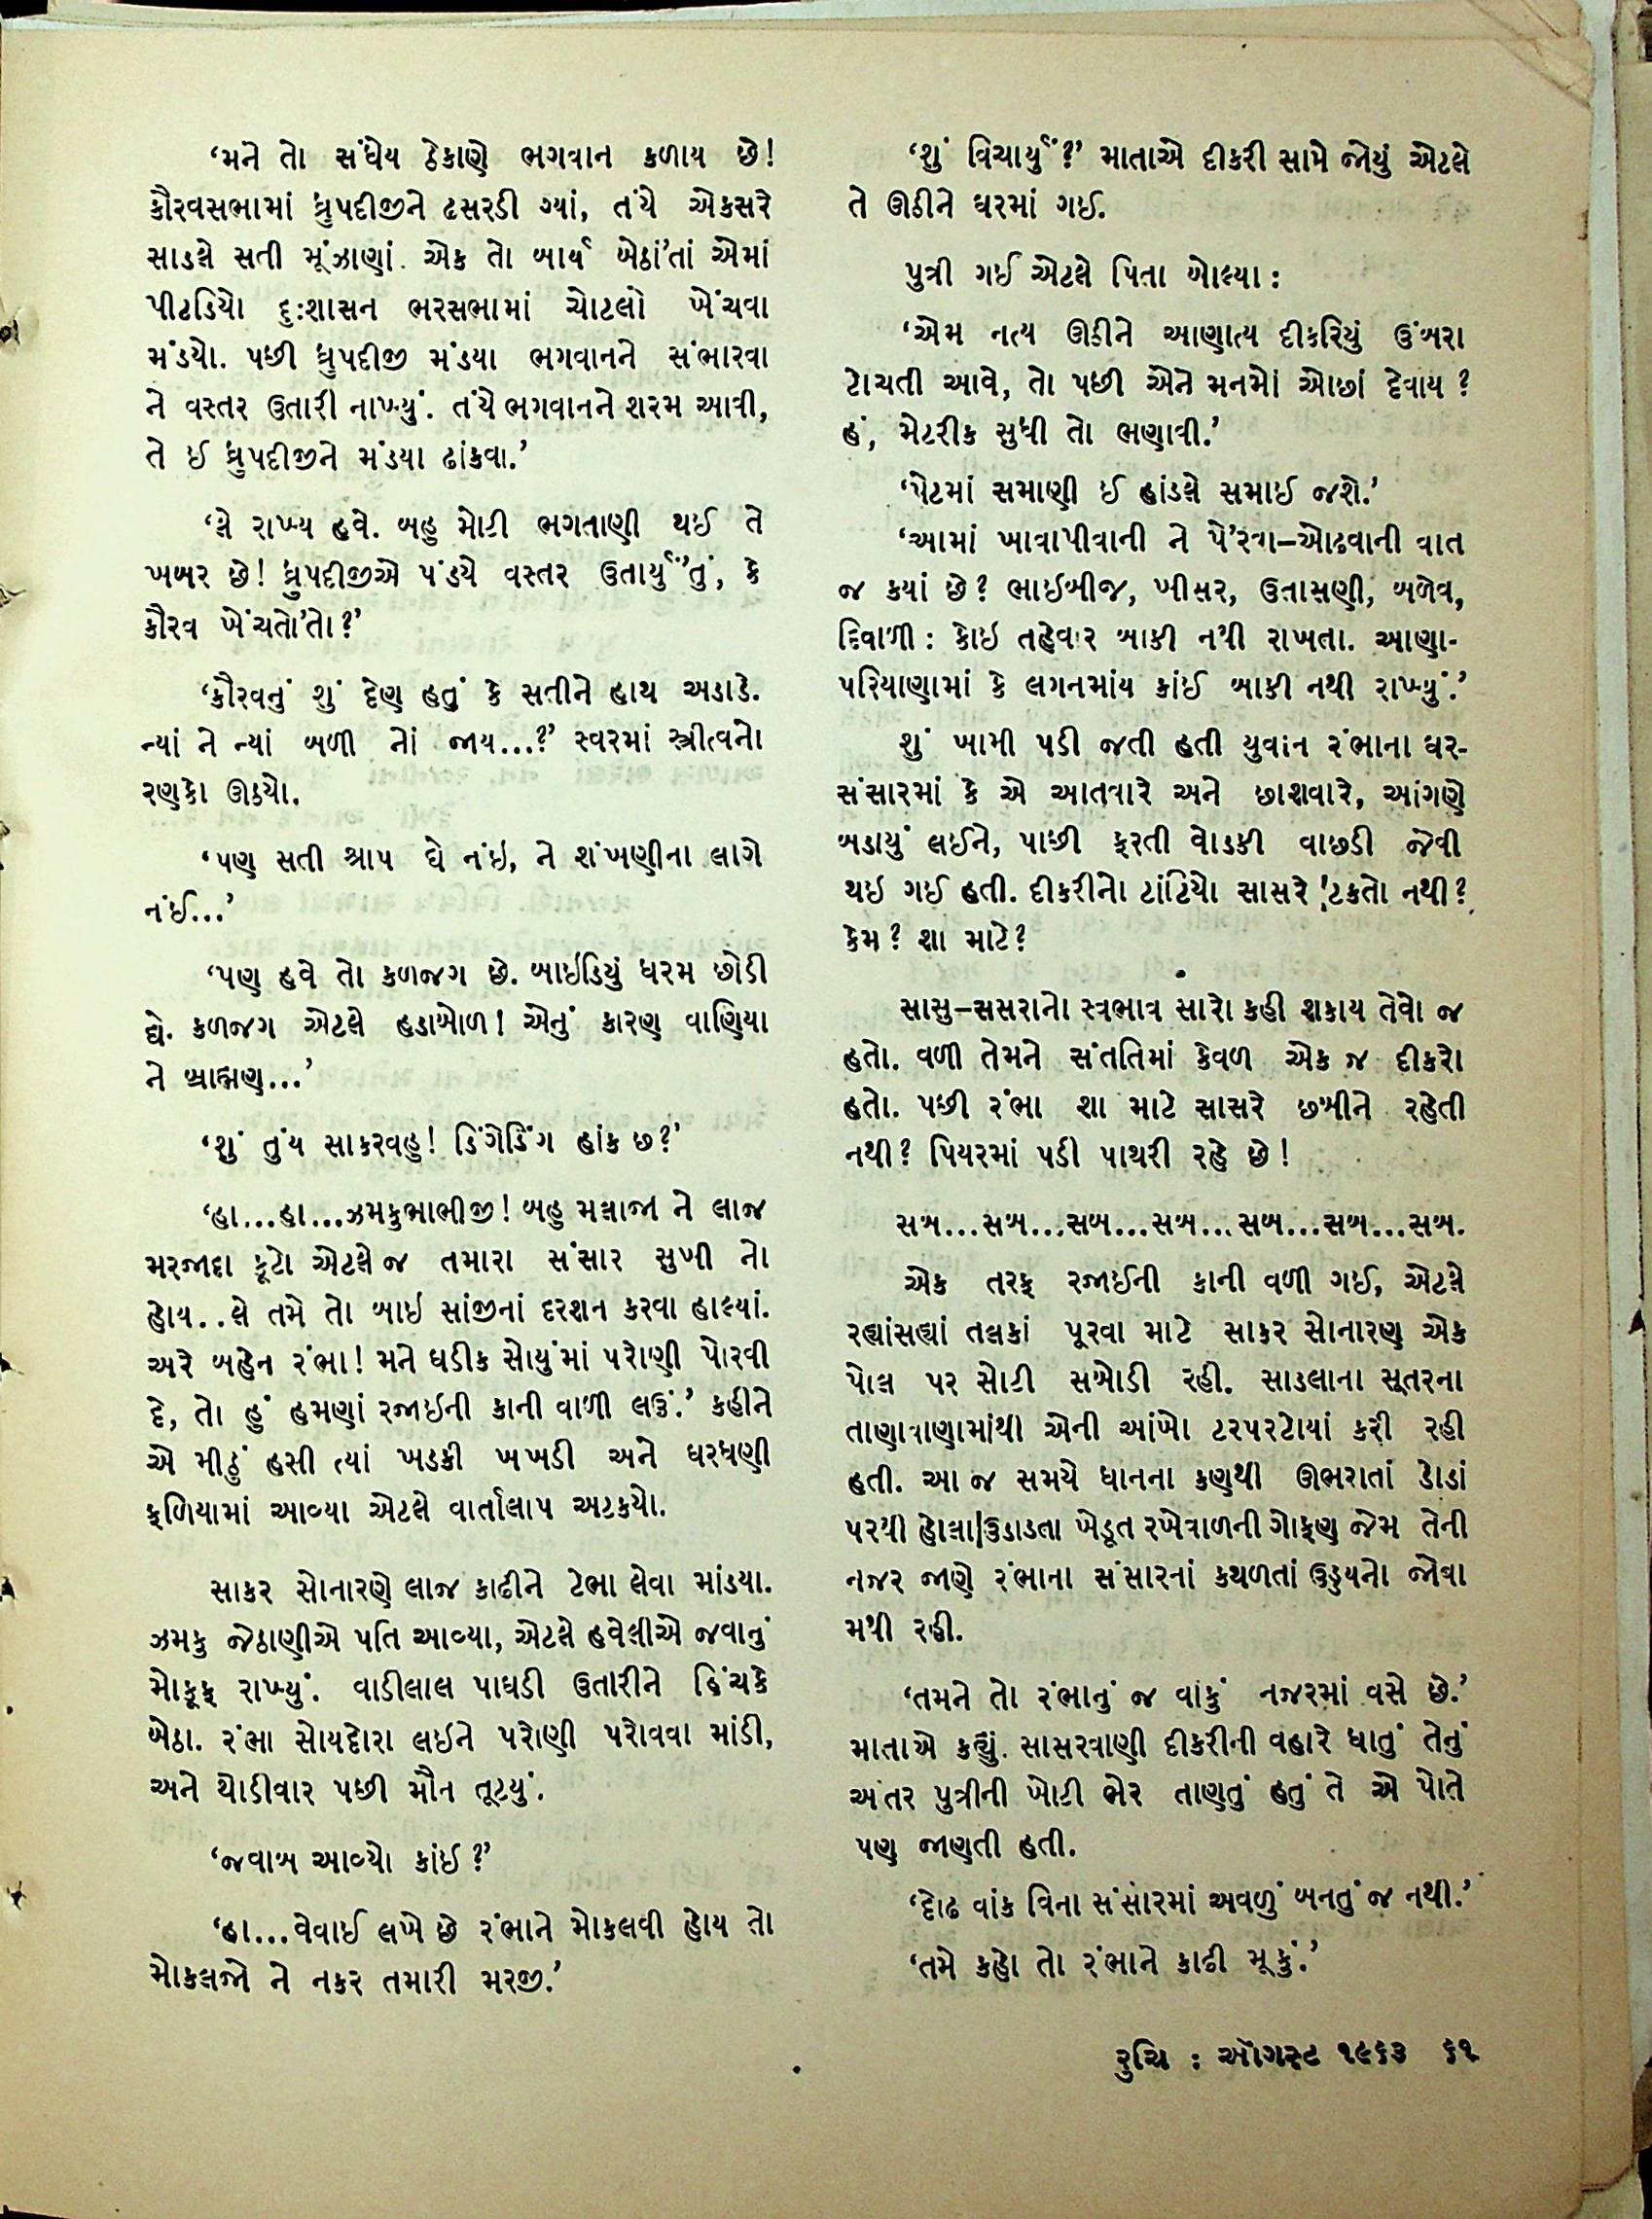 ‘મને તો સંધેય ઠેકાણે ભગવાન કળાય છે!
કૌરવસભામાં ધ્રુપદીજીને ઢસરડી ગ્યાં, તંયે એકસરે
સાડલે સતી મૂંઝાણાં. એક તો બાર્ય બેઠાં’તાં એમાં
પીટડિયો દુઃશાસન ભરસભામાં ચોટલો ખેંચવા
મંડયો. પછી ધ્રુપદીજી મંડયા ભગવાનને સંભારવા
ને વસ્તર ઉતારી નાખ્યું. તંયે ભગવાનને શરમ આવી,
તે ઈ ધ્રુપદીજીને મંડયા ઢાંકવા.’
‘લે રાખ્ય હવે. બહુ મોટી ભગતાણી થઈ તે
ખબર છે! ધ્રુપદીજીએ પંડયે વસ્તર ઉતાર્યું’તું, કે
કૌરવ ખેંચતો’તો?’
‘કૌરવનું શું દેણ હતું કે સતીને હાથ અડાડે.
ન્યાં ને ન્યાં બળી નોં જાય...?’ સ્વરમાં સ્ત્રીત્વનો
રણકો ઊઠયો.
‘પણ સતી શ્રાપ ધે નંઇ, ને શંખણીના લાગે
નંઈ...’
‘પણ હવે તો કળજગ છે. બાઇડિયું ધરમ છોડી
દ્યે. કળજગ એટલે હડાબોળ! એનું કારણ વાણિયા
ને બ્રાહ્મણ...’
‘શું તુંય સાકરવહુ! ડિંગેડિંગ હાંક છ?’
‘હા...હા...ઝમકુભાભીજી! બહુ મલાજા ને લાજ
મરજાદા કૂટો એટલે જ તમારા સંસાર સુખી નો
હોય..લે તમે તો બાઇ સાંજીનાં દરશન કરવા હાલ્યાં.
અરે બહેન રંભા! મને ઘડીક સોયુંમાં પરોણી પોરવી
દે, તો હું હમણાં રજાઇની કાની વાળી લઉં.’ કહીને
એ મીઠું હસી ત્યાં ખડકી ખખડી અને ઘરધણી
ફળિયામાં આવ્યા એટલે વાર્તાલાપ અટકયો.
સાકર સોનારણે લાજ કાઢીને ટેભા લેવા માંડયા.
ઝમકુ જેઠાણીએ પતિ આવ્યા, એટલે હવેલીએ જવાનું
મોકૂફ રાખ્યું. વાડીલાલ પાઘડી ઉતારીને હિંચકે
બેઠા. રંભા સોયદોરા લઇને પરોણી પરોવવા માંડી,
અને થોડીવાર પછી મૌન તૂટયું.
‘જવાબ આવ્યો કાંઈ?’
‘હા...વેવાઈ લખે છે રંભાને મોકલવી હોય તો
મોકલજો ને નકર તમારી મરજી.’
‘શું વિચાર્યું?’ માતાએ દીકરી સામે જોયું એટલે
તે ઊઠીને ઘરમાં ગઈ.
પુત્રી ગઈ એટલે પિતા બોલ્યા :
‘એમ નત્ય ઊઠીને આણાત્ય દીકરિયું ઉંબરા
ટોચતી આવે, તો પછી એને મનમોં ઓછાં દેવાય?
હં, મેટરીક સુધી તો ભણાવી.’
‘પેટમાં સમાણી ઈ હાંડલે સમાઈ જશે.’
‘આમાં ખાવાપીવાની ને પે’રવા–ઓઢવાની વાત
જ કયાં છે? ભાઇબીજ, ખીસર, ઉતાસણી, બળેવ,
દિવાળી : કોઇ તહેવાર બાકી નથી રાખતા. આણા-
પરિયાણામાં કે લગનમાંય કાંઈ બાકી નથી રાખ્યું.’
શું ખામી પડી જતી હતી યુવાન રંભાના ઘર-
સંસારમાં કે એ આતવારે અને છાશવારે, આંગણે
બડાયું લઈને, પાછી ફરતી વોડકી વાછડી જેવી
થઇ ગઈ હતી. દીકરીનો ટાંટિયો સાસરે ટકતો નથી?
કેમ? શા માટે?
સાસુ–સસરાનો સ્વભાવ સારો કહી શકાય તેવો જ
હતો. વળી તેમને સંતતિમાં કેવળ એક જ દીકરો
હતો. પછી રંભા શા માટે સાસરે છબીને રહેતી
નથી? પિયરમાં પડી પાથરી રહે છે!
સબ...સબ...સબ...સબ...સબ...સબ...સબ.
એક તરફ રજાઈની કાની વળી ગઈ, એટલે
રહ્યાંસહ્યાં તલકાં પૂરવા માટે સાકર સોનારણ એક
પોલ પર સોટી સબોડી રહી. સાડલાના સૂતરના
તાણાવાણામાંથી એની આંખો ટરપરટોયાં કરી રહી
હતી. આ જ સમયે ધાનના કણથી ઊભરાતાં ડોડાં
પરથી હોલા ઉડાડતા ખેડૂત રખેવાળની ગોફણ જેમ તેની
નજર જાણે રંભાના સંસારનાં કથળતાં ઉડ્ડયનો જોવા
મથી રહી.
‘તમને તો રંભાનું જ વાંકું નજરમાં વસે છે.’
માતાએ કહ્યું. સાસરવાણી દીકરીની વહારે ધાતું તેનું
અંતર પુત્રીની ખોટી ભેર તાણતું હતું તે એ પોતે
પણ જાણતી હતી.
‘દોઢ વાંક વિના સંસારમાં અવળું બનતું જ નથી.’
‘તમે કહો તો રંભાને કાઢી મૂકું.’
રુચિ : ઑગસ્ટ ૧૯૬૩ ૬૧